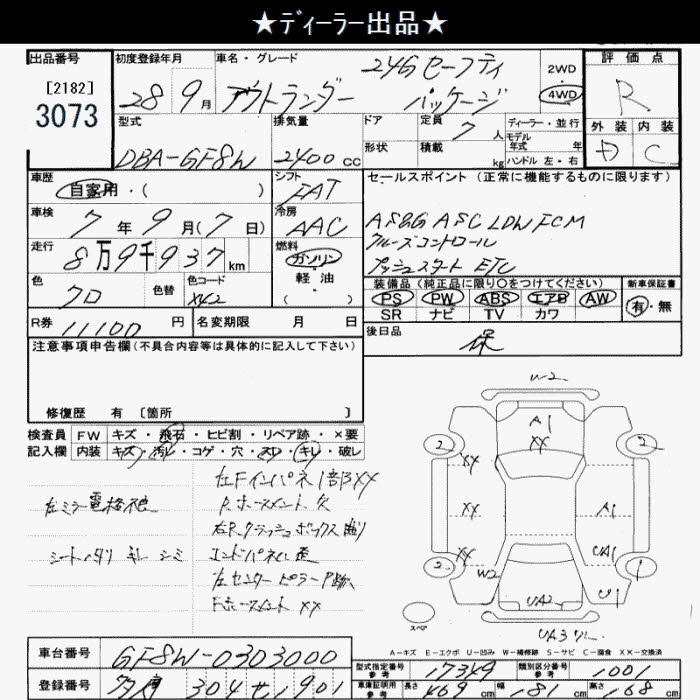 ★ディーラー出品★
出品番号
[2182]
3073
初度登録年月
28 9月
車名・グレード
アウトランダー
24G セーフティ
パッケージ
2WD
4WD
評価点
R
外装 内装
D C
型式
DBA-GF8W
排気量
2400 cc
ドア
形状
定員
7人
積載
kg
ディーラー・並行
モデル
年式 年
ハンドル 左・右
車歴
自家用・( )
シフト
FAT
セールスポイント(正常に機能するものに限ります)
AS&G ASC LDW FCM
クルーズコントロール
プッシュスタート ETC
車検
7年9月(7日)
冷房
AAC
走行
8万9千937km
燃料
ガソリン
軽油
( )
色
クロ
色替
色コード
X42
装備品(純正品に限り○をつけてください)
PS PW ABS エアB AW
SR ナビ TV カワ
新車保証書
有・無
R券
11100円
名変期限 月 日
後日品
保
注意事項申告欄(不具合内容等は具体的に記入して下さい)
修復歴 有 [箇所 ]
検査員 FW キズ・飛石・ヒビ割・リペア跡・×要
記入欄 内装 キズ・汚レ・コゲ・穴・スレ・キレ・破レ
左Fインパネ1部XX
左ミラー電格不良
Rホースメント欠
右Rクラッシュボックス曲り
シートスリ キレ シミ
エンドパネル歪
左センターピラーP跡
Fホースメント XX
W2
A1
XX
2
2
XX
XX
A1
XX
UA1
2
W2
1
U1
UA2
スペア
UA3
A-キズ E-エクボ U-凹み W-補修跡 S-サビ C-腐食 XX-交換済
車台番号
GF8W-0303000
登録番号
304 せ 1901
型式指定番号
参考
17349
類別区分番号
参考
1001
車庫証明用
参考
長さ
469cm
幅
181cm
高さ
168cm